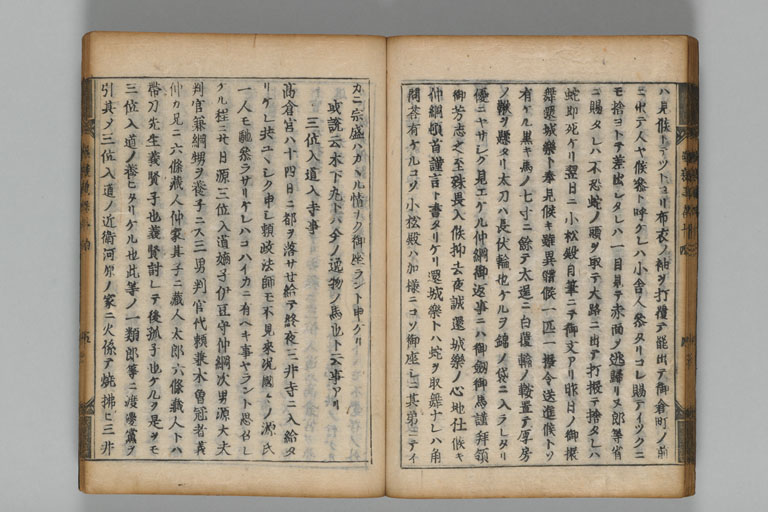 ハ見候トテツトヨリ布衣ノ袖ヲ打覆テ罷出テ御倉町ノ前
ニ出テ人ヤ候ト呼ケレハ小舎人参タリコレ賜テイツクニ
モ捨ヨトテ差出シタレハ一目見テ赤面ヲ逃歸リヌ郎等省
ニ賜タレハ不恐蛇ノ頭ヲ取テ大路ニ出テ打振テ捨タレハ
蛇即死ケリ翌日ニ小松殿自筆ニテ御文アリ昨日ノ御振
舞還城樂ト奉見候キ雖異體候一匹一振令送進候トソ
有ケル黒キ馬ノ七寸ニ餘テ太逞ニ白覆輪ノ鞍置テ厚房
ノ鞦ヲ懸タリ太刀ハ長伏輪也ケルヲ錦ノ袋ニ入ラレタリ
優ニヤサシク見エケル仲綱御返事ニハ御劔御馬謹拝領
御芳志之至殊畏入候抑去夜誠還城樂ノ心地仕候キ
仲綱頓首謹言ト書タリケリ還城樂トハ蛇ヲ取舞ナレハ角
問答有ケルコソ小松殿ハ加様ニコソ御座シニ其弟ニテイ
カニ宗盛ハカヽル情ヲク御座ラント申ケリ
或説云木下九十八今ノ逸物ノ馬也ト云事アリ
三位入道入寺事
高倉宮ハ十四日ニ都ヲ落サセ給テ終夜三井寺ニ入給タ
リケレ共ユヽシク申シ頼政法師モ不見來況國々ノ源氏
一人モ馳参ラサリケレハコハイカニ有ヘキ事ヤラント思召シ
ケル程ニ廿日源三位入道嫡子伊豆守仲綱次男源大夫
判官兼綱甥ヲ養子ニス三男判官代頼兼木曽冠者義
仲カ兄ニ六條蔵人仲家其子ニ蔵人太郎六條蔵人トハ
帯刀先生義賢子也義賢討レテ後孤子也ケルヲ是ヲモ
三位入道ノ養ヒタリケル也此等ノ一類郎等ニ渡邊黨ヲ
引具ノ三位入道ノ近衛河原ノ家ニ火係テ焼拂ヒ三井